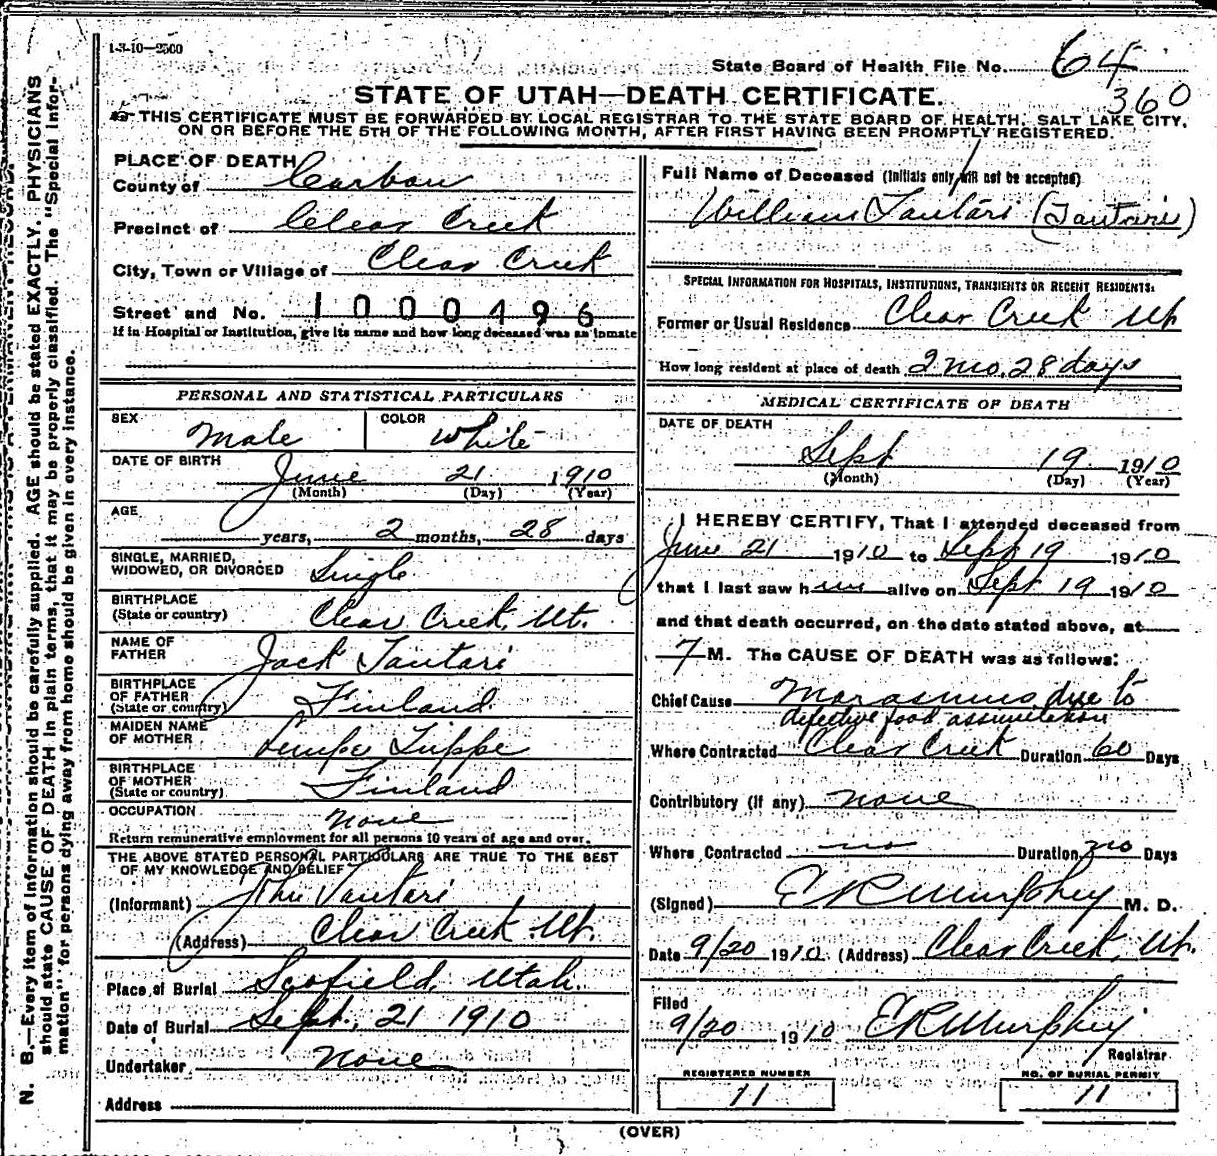 1-3-10—2500
State Board of Health File No. 64
360
STATE OF UTAH—DEATH CERTIFICATE.
THIS CERTIFICATE MUST BE FORWARDED BY LOCAL REGISTRAR TO THE STATE BOARD OF HEALTH, SALT LAKE CITY,
ON OR BEFORE THE 5TH OF THE FOLLOWING MONTH, AFTER FIRST HAVING BEEN PROMPTLY REGISTERED.
PLACE OF DEATH
County of Carbon
Precinct of Clear Creek
City, Town or Village of Clear Creek
Street and No. 1000496
If in Hospital or Institution, give its name and how long deceased was an inmate
PERSONAL AND STATISTICAL PARTICULARS
SEX Male COLOR White
DATE OF BIRTH June 21 1910
(Month) (Day) (Year)
AGE
years, 2 months, 28 days
SINGLE, MARRIED,
WIDOWED, OR DIVORCED Single
BIRTHPLACE
(State or country) Clear Creek, Ut.
NAME OF
FATHER Jack Tantari
BIRTHPLACE
OF FATHER
(State or country) Finland
MAIDEN NAME
OF MOTHER
BIRTHPLACE
OF MOTHER
(State or country) Finland
OCCUPATION None
Return remunerative employment for all persons 10 years of age and over.
THE ABOVE STATED PERSONAL PARTICULARS ARE TRUE TO THE BEST
OF MY KNOWLEDGE AND BELIEF
(Informant) John Tantari
(Address) Clear Creek Ut.
Place of Burial Scofield, Utah.
Date of Burial Sept. 21 1910
Undertaker None
Address
Full Name of Deceased (Initials only will not be accepted)
William Tantari
SPECIAL INFORMATION FOR HOSPITALS, INSTITUTIONS, TRANSIENTS OR RECENT RESIDENTS:
Former or Usual Residence Clear Creek Ut
How long resident at place of death 2 mo. 28 days
MEDICAL CERTIFICATE OF DEATH
DATE OF DEATH
Sept 19 1910
(Month) (Day) (Year)
I HEREBY CERTIFY, That I attended deceased from
June 21 1910 to Sept 19 1910
that I last saw him alive on Sept 19 1910
and that death occurred, on the date stated above, at
7 M. The CAUSE OF DEATH was as follows:
Chief Cause Marasmus due to
defective food assimilation
Where Contracted Clear Creek Duration 60 Days
Contributory (if any) none
Where Contracted no Duration no Days
(Signed) E R Murphey M. D.
Date 9/20 1910 (Address) Clear Creek, Ut.
Filed
9/20 1910 E R Murphey
Registrar
REGISTERED NUMBER NO. OF BURIAL PERMIT
11 11
(OVER)
N. B.—Every item of information should be carefully supplied. AGE should be stated EXACTLY. PHYSICIANS
should state CAUSE OF DEATH in plain terms, that it may be properly classified. The "Special Infor-
mation" for persons dying away from home should be given in every instance.